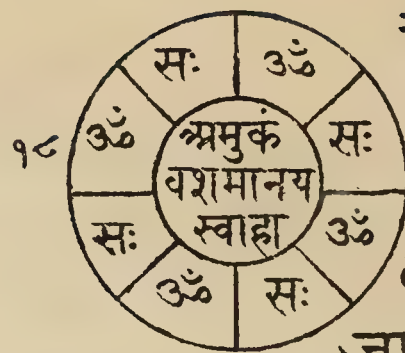 १८
सः
ॐ
सः
ॐ
सः
ॐ
सः
ॐ
अमुकं
वशमानय
स्वाहा